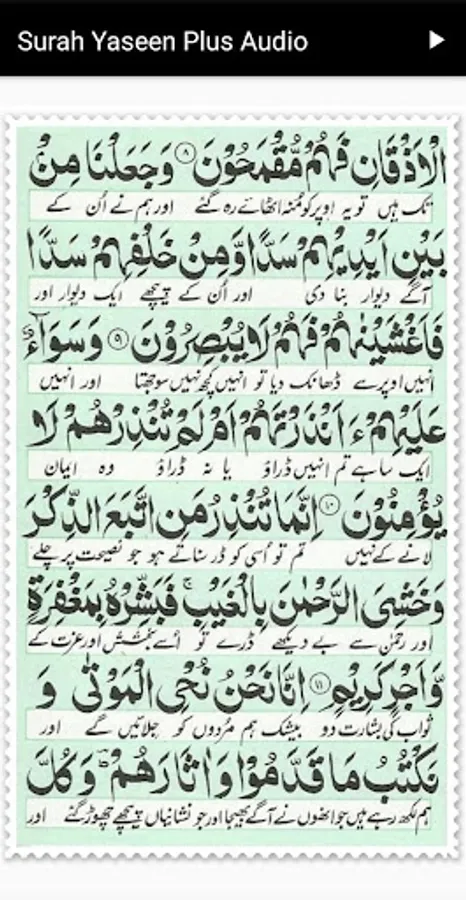 Surah Yaseen Plus Audio
الْاَذْقَانِ فَهُمْ مُّقْمَحُوْنَ ﴿۸﴾ وَجَعَلْنَا مِنْۢ
تک ہیں تو یہ اوپر کو مُنہ اٹھائے رہ گئے اور ہم نے اُن کے
بَيْنِ اَيْدِيْهِمْ سَدًّا وَّمِنْ خَلْفِهِمْ سَدًّا
آگے دیوار بنا دی اور اُن کے پیچھے ایک دیوار اور
فَاَغْشَيْنٰهُمْ فَهُمْ لَا يُبْصِرُوْنَ ﴿۹﴾ وَسَوَآءٌ
انہیں اوپر سے ڈھانک دیا تو انہیں کچھ نہیں سوجھتا اور انہیں
عَلَيْهِمْ ءَاَنْذَرْتَهُمْ اَمْ لَمْ تُنْذِرْهُمْ لَا
ایک سا ہے تم انہیں ڈراؤ یا نہ ڈراؤ وہ ایمان
يُؤْمِنُوْنَ ﴿۱۰﴾ اِنَّمَا تُنْذِرُ مَنِ اتَّبَعَ الذِّكْرَ
لانے کے نہیں تم تو اُسی کو ڈر سناتے ہو جو نصیحت پر چلے
وَخَشِيَ الرَّحْمٰنَ بِالْغَيْبِ ۚ فَبَشِّرْهُ بِمَغْفِرَةٍ
اور رحمٰن سے بے دیکھے ڈرے تو اُسے بخشش اور عزت کے
وَّاَجْرٍ كَرِيْمٍ ﴿۱۱﴾ اِنَّا نَحْنُ نُحْيِ الْمَوْتٰى وَ
ثواب کی بشارت دو بیشک ہم مُردوں کو جِلائیں گے اور
نَكْتُبُ مَا قَدَّمُوْا وَاٰثَارَهُمْ ؕ وَكُلَّ
ہم لکھ رہے ہیں جو انھوں نے آگے بھیجا اور جو نشانیاں پیچھے چھوڑ گئے اور